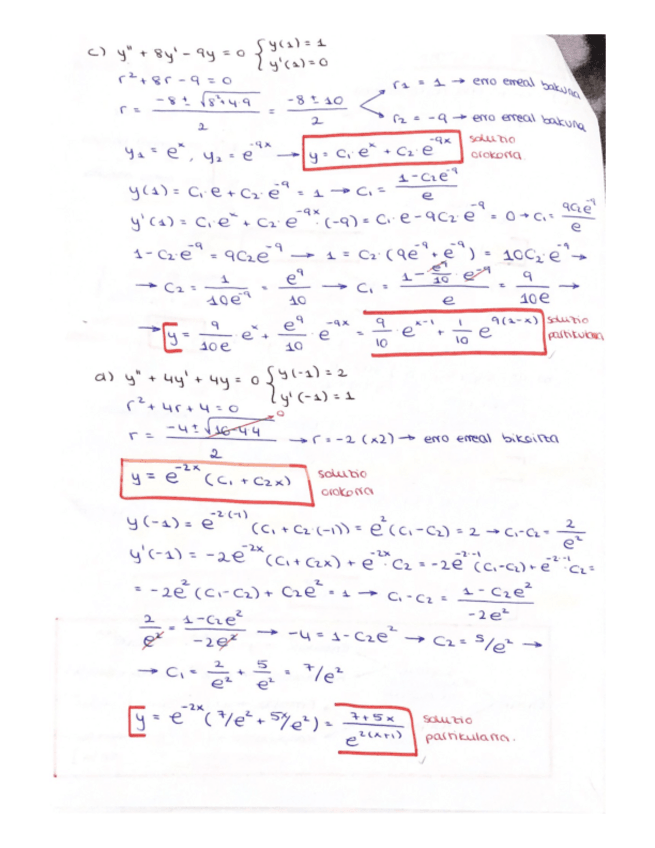 c) y" + 8y' - 9y = 0 { y(1) = 1
y'(1) = 0
r² + 8r - 9 = 0
r = (-8 ± √(8²+4·9)) / 2 = (-8 ± 10) / 2
r₁ = 1 → erro erreal bakuna
r₂ = -9 → erro erreal bakuna
y₁ = eˣ, y₂ = e^(-9x) → y = C₁·eˣ + C₂·e^(-9x) soluzio orokorra
y(1) = C₁·e + C₂·e^(-9) = 1 → C₁ = (1 - C₂e^(-9)) / e
y'(1) = C₁·eˣ + C₂·e^(-9x)·(-9) = C₁·e - 9C₂·e^(-9) = 0 → C₁ = 9C₂e^(-9) / e
1 - C₂·e^(-9) = 9C₂e^(-9) → 1 = C₂·(9e^(-9) + e^(-9)) = 10C₂·e^(-9) →
→ C₂ = 1 / 10e^(-9) = e⁹ / 10 → C₁ = (1 - e⁹/10 · e^(-9)) / e = 9 / 10e →
→ y = 9/10e · eˣ + e⁹/10 · e^(-9x) = 9/10 · e^(x-1) + 1/10 e^(9(1-x)) soluzio partikularra
d) y" + 4y' + 4y = 0 { y(-1) = 2
y'(-1) = 1
r² + 4r + 4 = 0
r = (-4 ± √(16-4·4)) / 2 → r = -2 (x2) → erro erreal bikoitza
0
y = e^(-2x) (C₁ + C₂x) soluzio orokorra
y(-1) = e^(-2(-1)) (C₁ + C₂·(-1)) = e²(C₁ - C₂) = 2 → C₁ - C₂ = 2/e²
y'(-1) = -2e^(-2x) (C₁ + C₂x) + e^(-2x)·C₂ = -2e^(-2·-1) (C₁ - C₂) + e^(-2·-1)·C₂ =
= -2e² (C₁ - C₂) + C₂e² = 1 → C₁ - C₂ = (1 - C₂e²) / -2e²
2/e² = (1 - C₂e²) / -2e² → -4 = 1 - C₂e² → C₂ = 5/e² →
→ C₁ = 2/e² + 5/e² = 7/e²
y = e^(-2x) (7/e² + 5x/e²) = (7 + 5x) / e^(2(x+1)) soluzio partikularra.